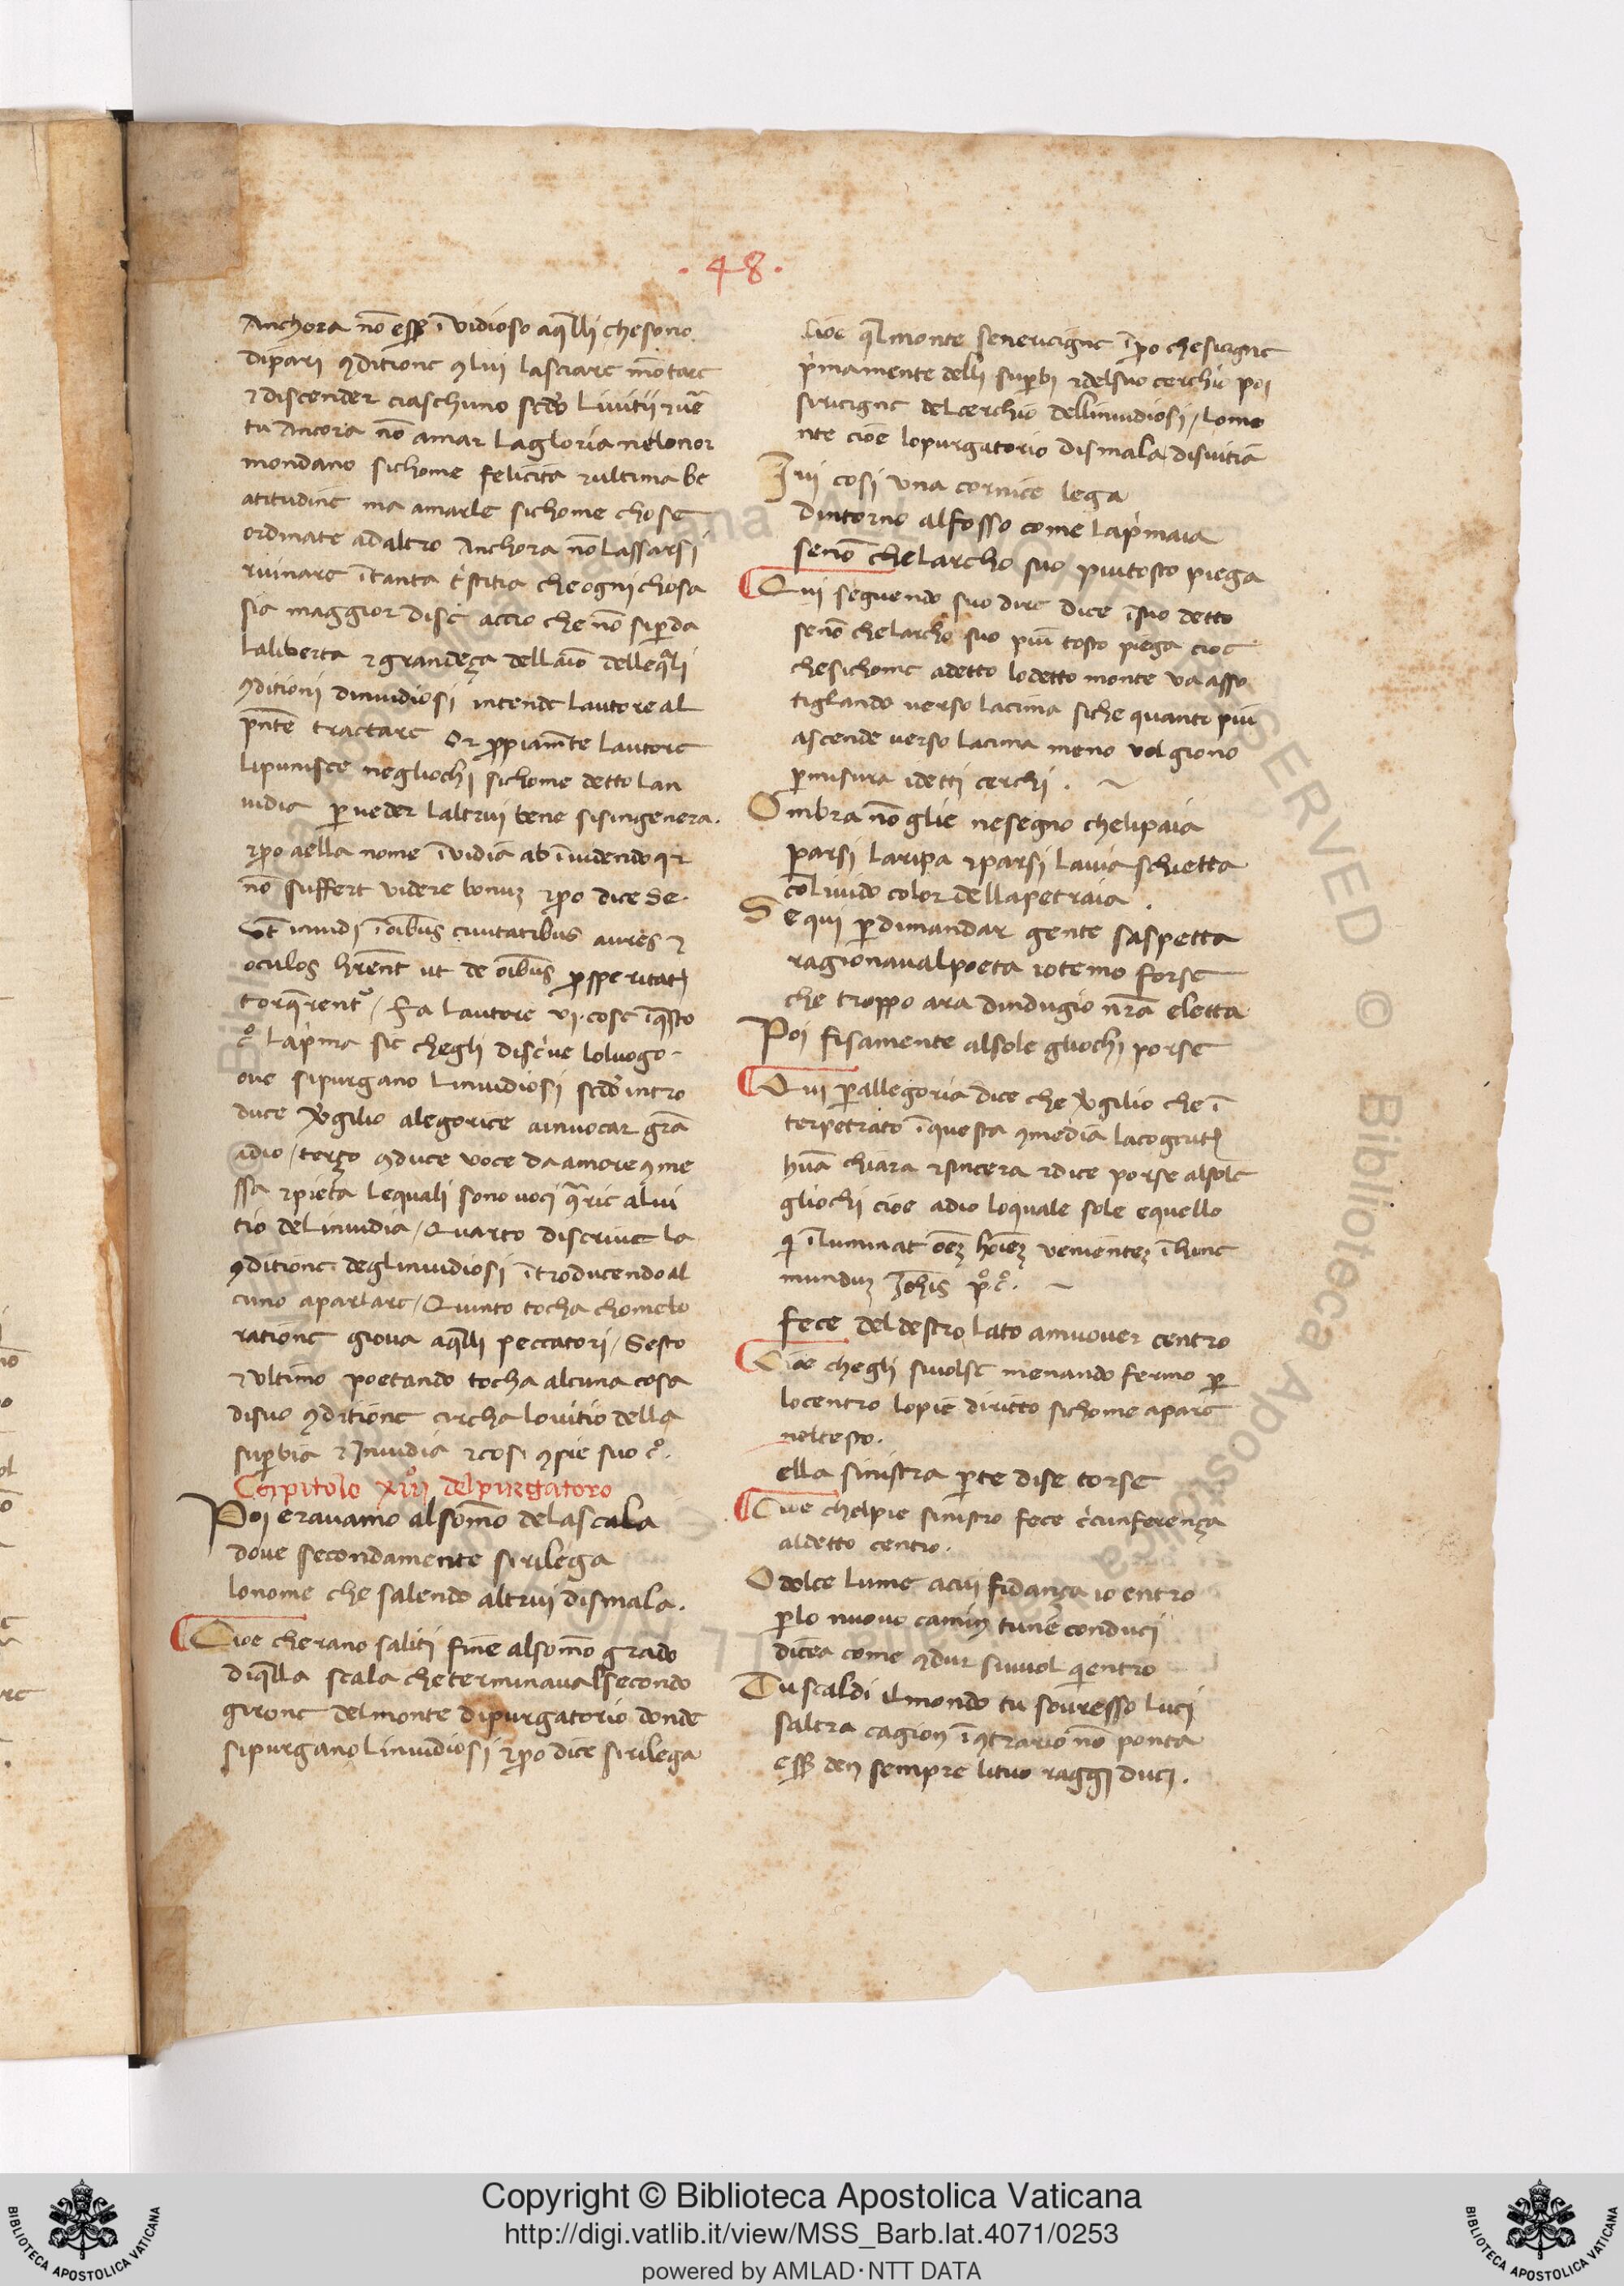 . 48 .
Anchora nō esser̄ īvidioso aq̄lli chesono
dipari ꝯditione ꝯ lui lasciare mōtare
⁊ discender ciaschuno scd̄o li uitij ⁊ uē
tu Ancora nō amar lagloria nelonor
mondano sichome felicita ⁊ ultima be
atitudine ma amarle sichome chose
ordinate adaltro Anchora nō lassarsi
ruinare ītanta t̄stitia che ogni chosa
sia maggior disc̄ accio che nō siꝑda
laliberta ⁊ grandeça dellaīo delleq̄li
ꝯditioni dinuidiosi intende lautore al
pn̄te tractare Or ꝓpiam̄te lautore
lipunisce negliochi sichome detto lan
uidia ꝑ ueder laltrui bene sisingenera.
⁊ꝑo aella nome īvidia ab īuidendo qr
nō suffert videre bonuꝫ ⁊ꝑo dice Se.
Vt̄ inuidi ī oībus ciuitatibus aures ⁊
oculos hr̄ent ut de oībus ꝓsperitatꝫ
torq̄rent᷑ / fa lautore vi. cose īq̄sto
c̊ lap̄ma sie chegli discriue loluogo
oue sipurgano linuidiosi scd̄o intro
duce v̄gilio alegorice ainuocar grā
adio / terço ꝯduce voce da amore ꝯme
ssa ⁊ pieta lequali sono uoci ꝯ̄rie alui
tio delinuidia / Quarto discriue la
ꝯditione deglinuidiosi ītroducendo al
cuno aparlare / Quinto tocha chomelo
ratione gioua aq̄lli peccatori / Sesto
⁊ ultimo poetando tocha alcuna cosa
disuo ꝯditione circha louitio della
suꝑbia ⁊ Inuidia ⁊ cosi ꝯpie suo c̊.
Capitolo xiij̊ delpurgatoro
Poi erauamo alsōmo delascala
doue secondamente sirilega
lonome che salendo altrui dismala.
Cioe cherano saliti fine alsomō grado
diq̄lla scala cheterminaua lsecondo
girone delmonte dipurgatorio donde
sipurgano linuidiosi ⁊ꝑo dice sirilega
Cioe q̄l monte senericigne īꝑo chesicigne
p̄mamente delli suꝑbi ⁊ delsuo cerchio poi
siricigne delcerchio dellinuidiosi / lomo
nte cioe lopurgatorio dismala disuitia
Iui cosi vna cornice lega
dintorno alfosso come lap̄maia
senō chelarcho suo piutosto piega
Qui seguendo suo dire dice īsuo detto
senō chelarcho suo piu tosto piega cioe
chesichome adetto lodetto monte va asso
tiglando verso lacima siche quanto piu
ascende uerso lacima meno volgiono
ꝑmisura idetti cerchi .
Ombra nō glie nesegno chelipaia
ꝑarsi laripa ⁊ ꝑarsi lauia schietta
col liuido color dellapetraia .
Se qui ꝑ dimandar gente saspetta
ragionaualpoeta iotemo forse
che troppo ara dindugio nr̄a eletta
Poi fisamente alsole gliochi porse
Qui ꝑ allegoria dice che v̄gilio che ī
terpetrato īquesta ꝯmedia lacognitꝫ
hūa chiara ⁊ sincera ⁊ dice porse alsole
gliochi cioe adio loquale sole equello
qi īluminat oēꝫ hoīeꝫ venienteꝫ ī hunc
munduꝫ Joh̄is p̊ c̊.
fece deldestro lato amuouer centro
Cioe chegli siuolse menando fermo ꝑ
locentro lopie diritto sichome apare
neltesto.
ella sinistra ꝑte dise torse
Cioe chelpie sinistro fece c̄cunferença
aldetto centro.
O dolce lume acui fidança io entro
ꝑ lo nuouo camin tune conduci
dicea come ꝯdur siuuol q̄ientro
Tu scaldi ilmondo tu souresso luci
saltra cagion ī ꝯtrario nō ponta
esser̄ den sempre lituo raggi duci .
Copyright © Biblioteca Apostolica Vaticana
http://digi.vatlib.it/view/MSS_Barb.lat.4071/0253
powered by AMLAD·NTT DATA
BIBLIOTECA APOSTOLICA VATICANA
BIBLIOTECA APOSTOLICA VATICANA